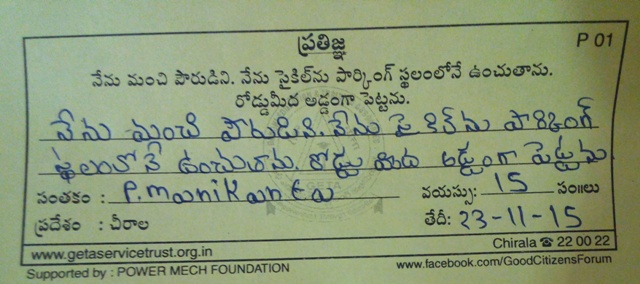 ప్రతిజ్ఞ P 01
నేను మంచి పౌరుడిని. నేను సైకిల్‌ను పార్కింగ్ స్థలంలోనే ఉంచుతాను.
రోడ్డుమీద అడ్డంగా పెట్టను.
నేను మంచి పౌరుడిని. నేను సైకిల్‌ను పార్కింగ్
స్థలంలోనే ఉంచుతాను రోడ్డు మీద అడ్డంగా పెట్టను
సంతకం : P.manikanta వయస్సు: 15 సం॥లు
ప్రదేశం : చీరాల తేదీ: 23-11-15
www.getaservicetrust.org.in Chirala ☎ 22 00 22
Supported by : POWER MECH FOUNDATION www.facebook.com/GoodCitizensForum